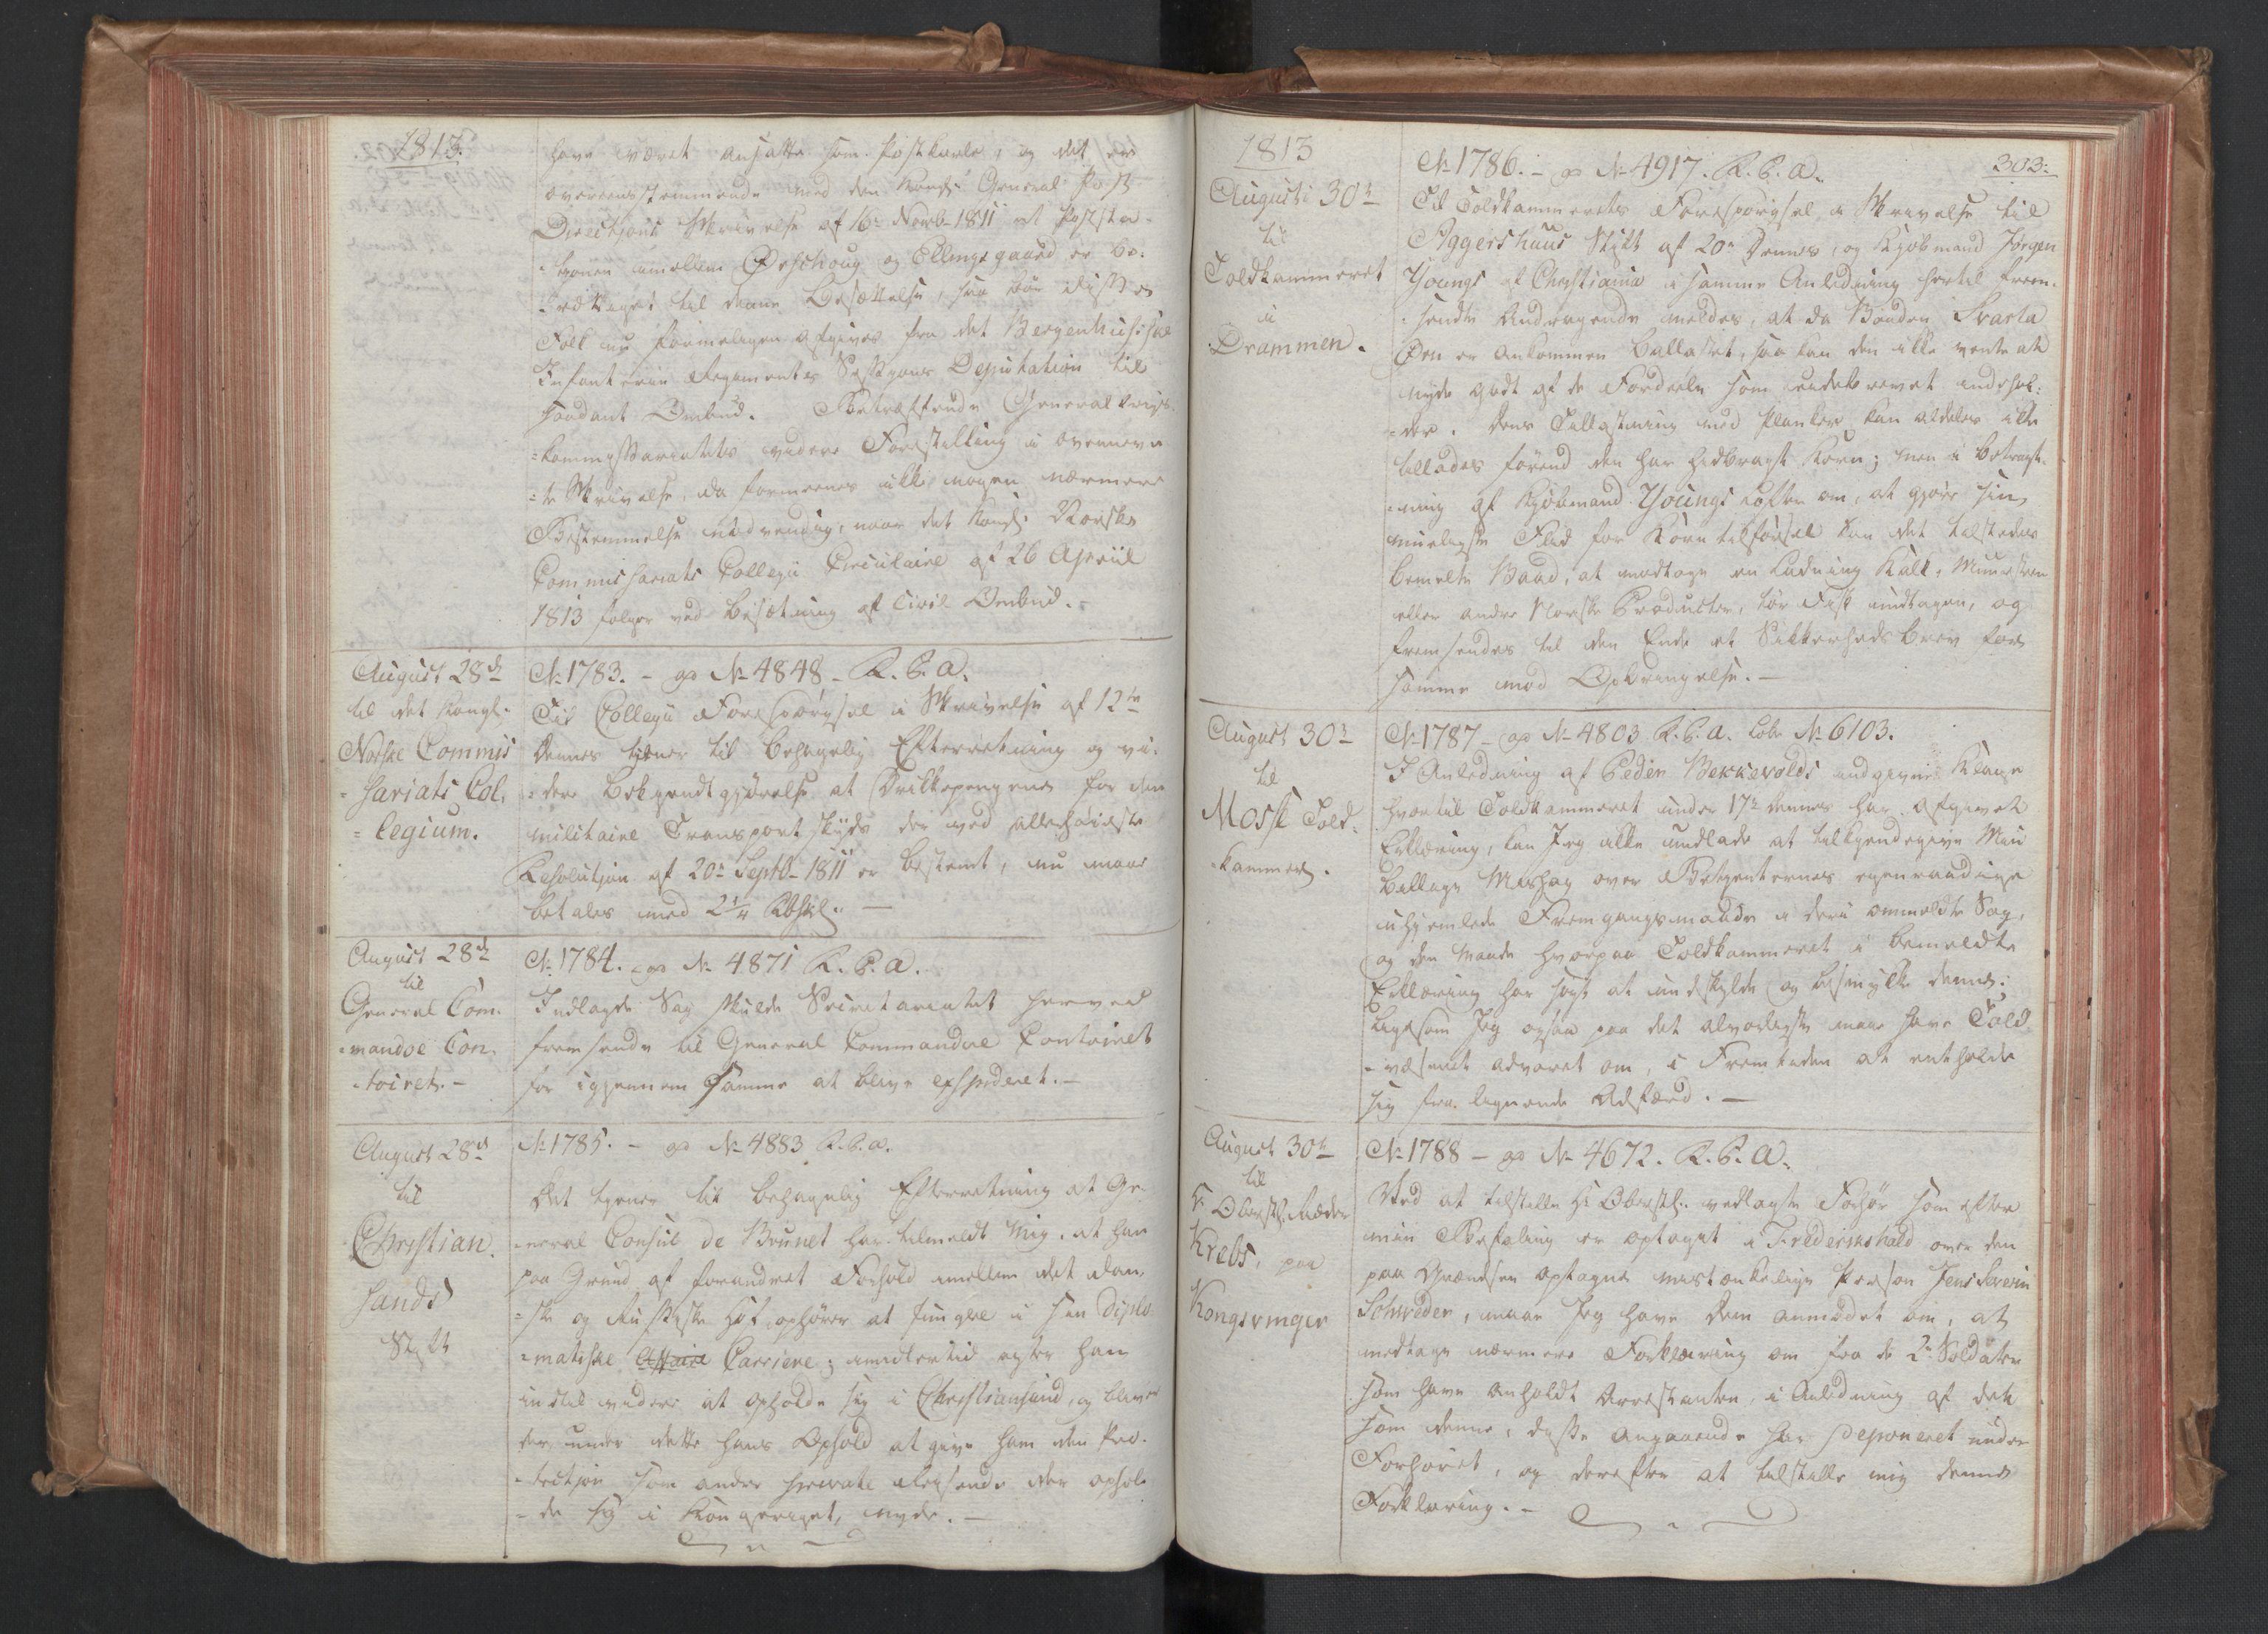 1813.
have været ansatte som Postkarle, og det er
overeensstemmende med den Kongl. General Post
Directions Skrivelse af 16de Novb. 1811 at Poststa-
=tionen imellem Ørschoug og Ellingsgaard er be-
Folk nu foreneligen afgives fra det Bergenhusiske
Infanterie Regiments Sessions Deputation til
saadant Ombud. Betræffende Generalkrigs-
=kommissariatets videre Forestilling i ovennevn-
=te Skrivelse, da formeenes ikke nogen nærmere
Bestemmelse nødvendig, naar det Kongl. Norske
Commissariats Collegii Circulaire af 26 Apriil
1813 følges ved Besætning af Civil Ombud.-
August 28de
til det Kongl.
Norske Commis
=sariats Col-
=legium.
No 1783. - ad No 4848 - R. P. a.
Til Collegii Forespørgsel i Skrivelse af 12te
dennes tiener til behagelig Efterretning og vi-
=dere Bekjendtgjørelse at Drikkepengene for den
militaire Transport skyds der ved allerhøieste
Resolution af 20de Septb. 1811 er bestemt, nu maae
betales med 2 1/4 Rbskl. -
August 28de
til
General Com-
=mandoe Con-
=toiret.-
No 1784. ad No 4871 R. P. a.
Indlagde Sag skulde Secretariatet herved
fremsende til General Commandoe Contoiret
for igjennem samme at blive expederet.-
August 28de
til
Christian-
sands
Stift
No 1785. - ad No 4883 R. P. a.
Det tjener til behagelig Efterretning at Ge-
=neral Consul de Brunet har tilmeldt Mig, at han
paa Grund af forandret Forhold imellem det dan-
=ske og Russiske Hof ophører at fungere i sin Diplo-
=matiske Affaire Carriere; imidlertid agter han
indtil videre at opholde sig i Christiansund, og bliver
der under dette hans Ophold at give ham den Pro-
=tection som andre private Reisende der ophol-
=de sig i Kongeriget, nyde. -
1813
303.
Augusti 30te
til
Toldkammeret
i
Drammen.
No 1786. - ad No 4917. R. P. a.
Til Toldkammerets Forespørgsel i Skrivelse til
Aggershuus Stift af 20de dennes, og Kjøbmand Jørgen
Youngs af Christiania i samme Anledning hertil frem-
=sendte Andragende meldes, at da Baaden Svarta
Øen er ankommen ballastet, saa kan den ikke vente at
nyde godt af de Fordeele som Leidebrevet indehol-
=der. Dens Tilladning med Planker kan aldeles ikke
tillades førend den har hidbragt Korn; men i Betragt-
=ning af Kjøbmand Youngs Løfte om, at gjøre sin
mueligste Flid for Korntilførsel kan det tilstedes
bemelte Baad, at modtage en Ladning Kalk, Muursteen
eller andre Norske Producter, tør Fisk undtagen, og
fremsendes til den Ende et Sikkerheds Brev for
samme mod Opbringelse.-
August 30te
til
Moss Told-
=kammer.
No 1787 - ad No 4803 R. P. a. Lobe No 6103.
I Anledning af Peder Bekkevolds indgivne Klage
hvortil Toldkammeret under 17de dennes har afgivet
Erklæring, kan Jeg ikke undlade at tilkjendegive Min
billige Mishag over Betjenternes egenraadige
uhjemlede Fremgangsmaade i den ommeldte Sag,
og den Maade hvorpaa Toldkammeret i bemeldte
Erklæring har søgt at undskylde og besmykke denne;
ligesom Jeg ogsaa paa det alvorligste maae have Told-
=væsenet advaret om, i Fremtiden at entholde
sig fra lignende Adfærd.-
August 30te
til
Krebs, paa
Kongsvinger
No 1788 - ad No 4672. R. P. a.
Ved at tilstille Hr Oberstl. vedlagte Forhør som efter
min Befaling er optaget i Frederikshald over den
paa Grændsen optagne mistænkelige Person Jens Severin
Schrøder, maae Jeg have dem anmodet om, at
modtage nærmere Forklaring om fra de 2de Soldater
som have anholdt Arrestanten, i Anledning af det
som denne, disse angaaende har deponeret under
Forhøret, og derefter at tilstille mig denne
Forklaring.-